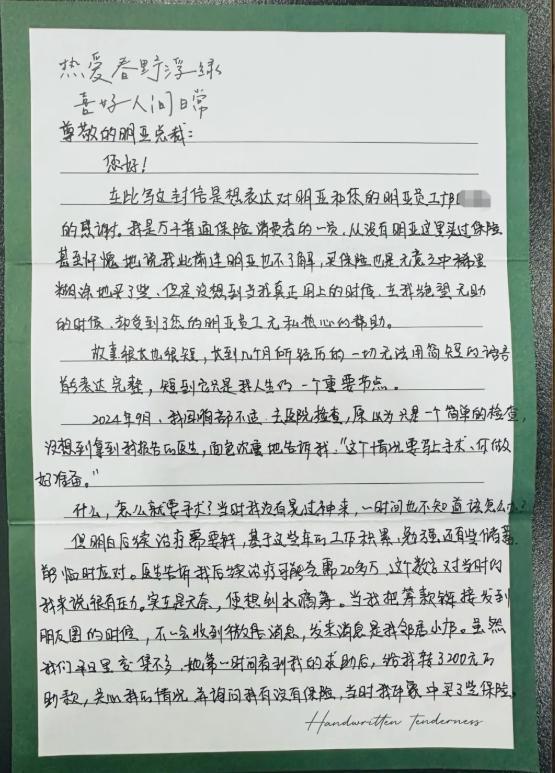 热爱春野浮绿
喜好人间日常
尊敬的明亚总裁：
您好！
在此写这封信是想表达对明亚和您的明亚员工
的感谢。我是万千普通保险消费者的一员，从没有明亚这里买过保险
甚至怀愧地说我此前连明亚也不了解，买保险也是无意之中稀里
糊涂地买了些，但是没想到当我真正用上的时候，在我绝望无助
的时候，却受到了您的明亚员工无私热心的帮助。
故事很长也很短，长到几个月所经历的一切无法用简短的语言
能表达完整，短到它只是我人生的一个重要节点。
2024年9月，我因胸部不适，去医院检查，原以为只是一个简单的检查，
没想到拿到我报告的医生，面色沉重地告诉我，“这个情况要马上手术，你做
好准备。”
什么，怎么就要手术？当时我没有晃过神来，一时间也不知道该怎么办？
但明白后续治疗需要钱，基于这些年的工作积累，勉强还有些储蓄，
能临时应对。医生告诉我后续治疗可能会需20多万，这个数字对当时的
我来说很有压力。实在是无奈，便想到水滴筹。当我把筹款链接发到
朋友圈的时候，不一会收到微信消息，发来消息是我邻居小邝。虽然
我们平日里交集不多，她第一时间看到我的求助后，给我转了200元的
助款，关心我的情况并询问我有没有保险，当时我印象中买了些保险。
Handwritten Tenderness